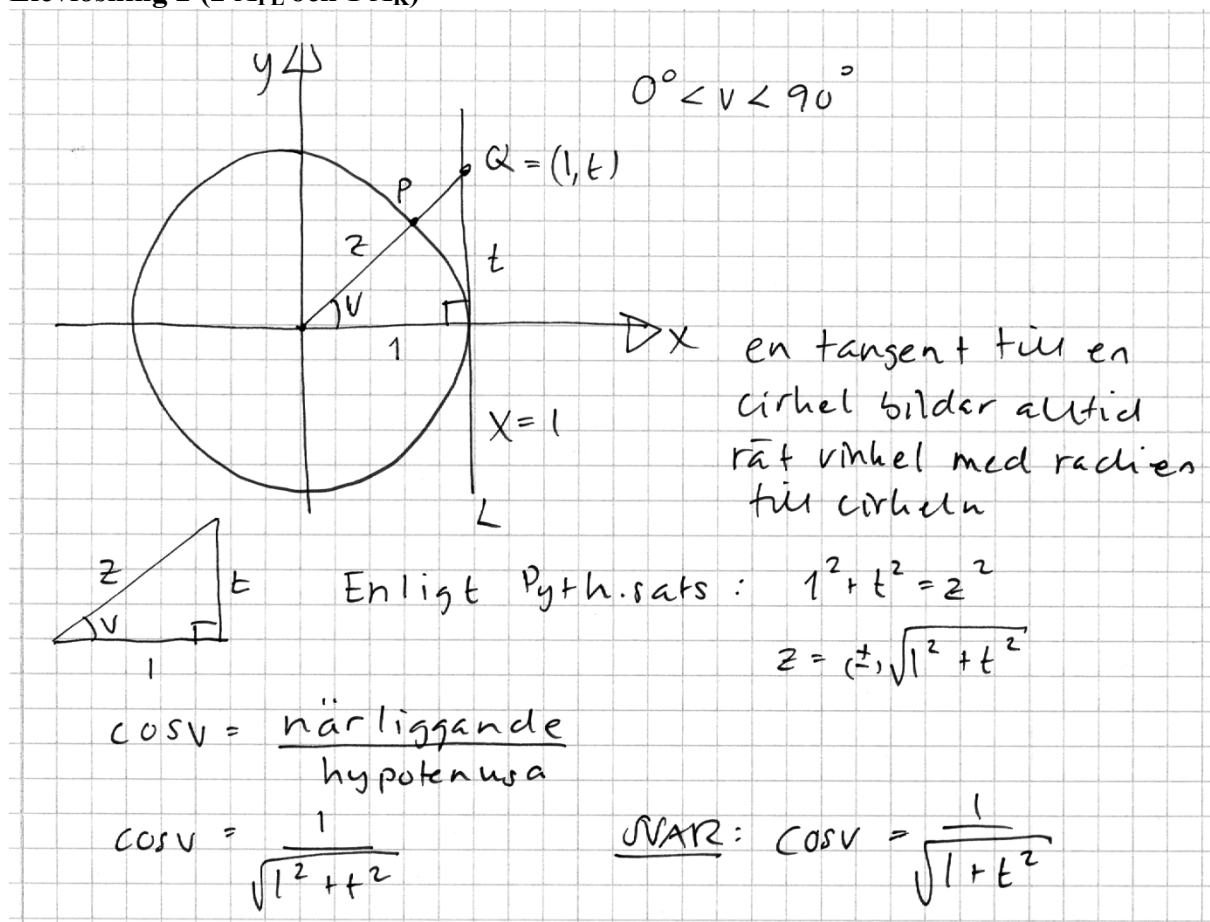 y
0° < v < 90°
Q = (1, t)
P
z
t
v
1
x
x = 1
L
en tangent till en
cirkel bildar alltid
rät vinkel med radien
till cirkeln
z
t
v
1
Enligt Pyth.sats : 1² + t² = z²
z = (±) √(1² + t²)
cosv = närliggande / hypotenusa
cosv = 1 / √(1² + t²)
SVAR: cosv = 1 / √(1 + t²)